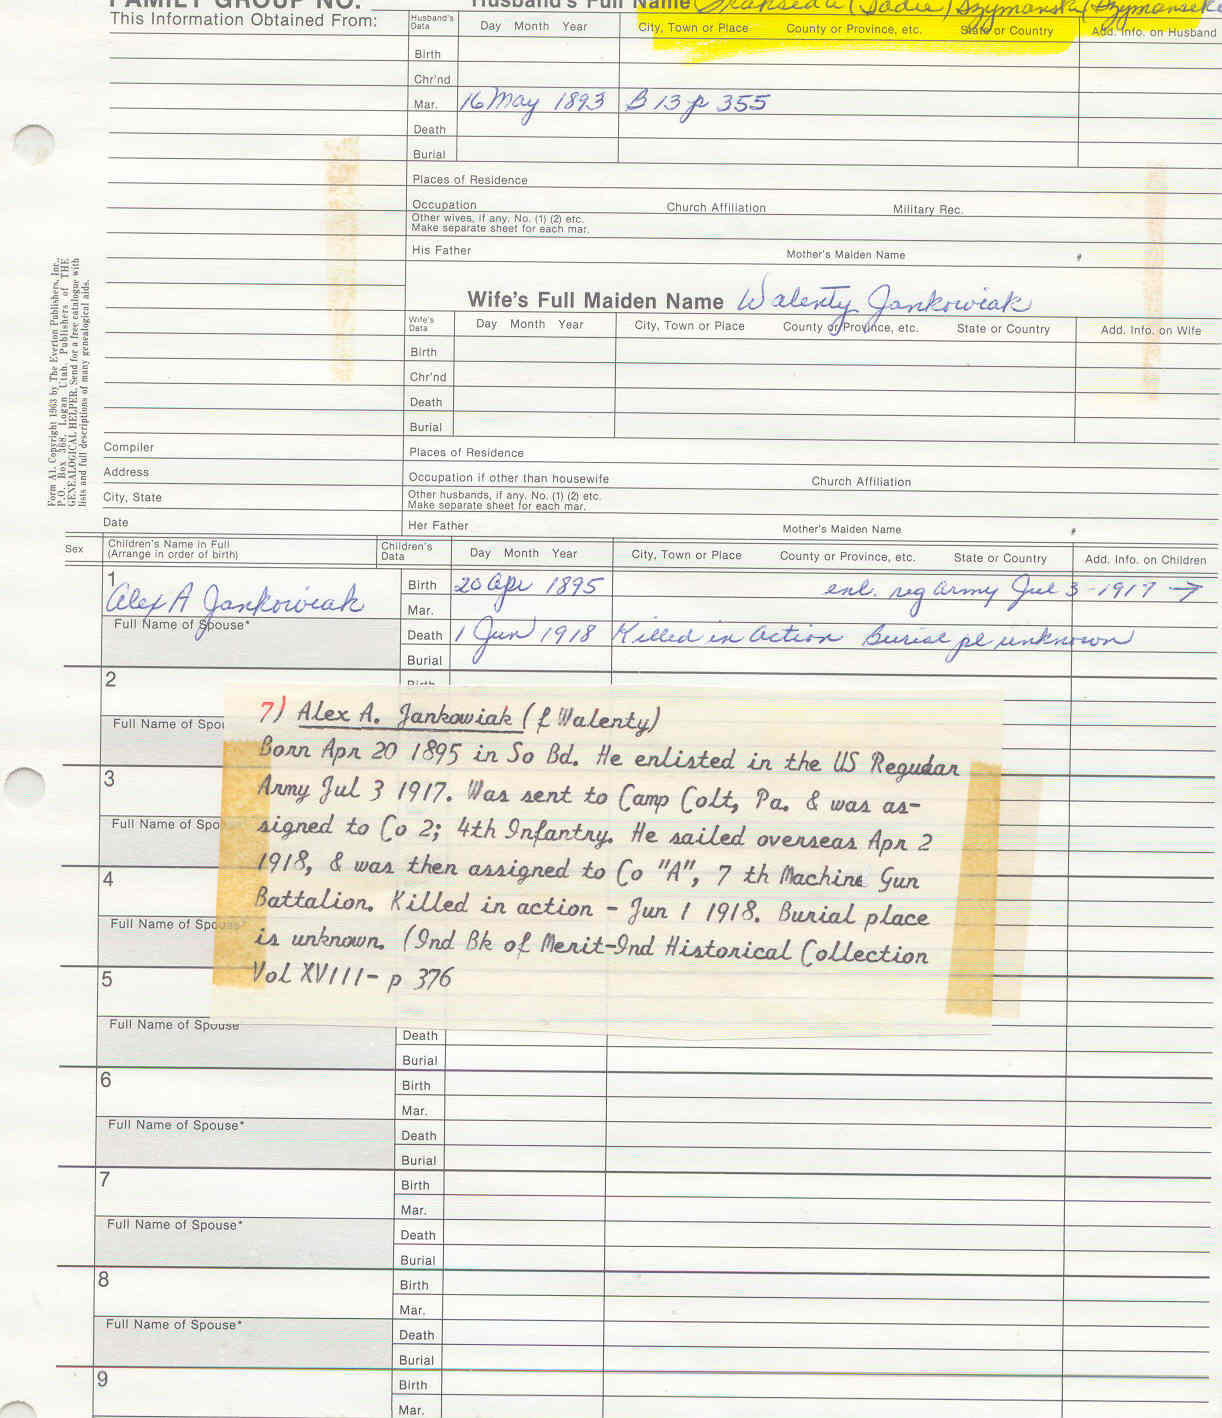 FAMILY GROUP NO.
Husband's Full Name (Sadie) Szymanski/Szymanseki
This Information Obtained From:
Husband's Data Day Month Year City, Town or Place County or Province, etc. State or Country Add. Info. on Husband
Birth
Chr'nd
Mar. 16 May 1893 B 13 p 355
Death
Burial
Places of Residence
Occupation Church Affiliation Military Rec.
Other wives, if any. No. (1) (2) etc.
Make separate sheet for each mar.
His Father Mother's Maiden Name
Wife's Full Maiden Name Walenty Jankowiak
Wife's Data Day Month Year City, Town or Place County or Province, etc. State or Country Add. Info. on Wife
Birth
Chr'nd
Death
Burial
Form A1. Copyright 1963 by The Everton Publishers, Inc.,
P.O. Box 368, Logan Utah. Publishers of THE
GENEALOGICAL HELPER. Send for a free catalogue with
lists and full descriptions of many genealogical aids.
Compiler Places of Residence
Address Occupation if other than housewife Church Affiliation
City, State Other husbands, if any. No. (1) (2) etc.
Make separate sheet for each mar.
Date Her Father Mother's Maiden Name
Sex Children's Name in Full
(Arrange in order of birth) Children's Data Day Month Year City, Town or Place County or Province, etc. State or Country Add. Info. on Children
1 Birth 20 Apr 1895 enl. reg army Jul 3 - 1917 →
Alex A Jankowiak Mar.
Full Name of Spouse* Death 1 Jun 1918 Killed in action Burial pl unknown
Burial
2 Birth
Full Name of Spou
7) Alex A. Jankowiak (f Walenty)
Born Apr 20 1895 in So Bd. He enlisted in the US Regular
Army Jul 3 1917. Was sent to Camp Colt, Pa. & was as-
signed to Co 2; 4th Infantry. He sailed overseas Apr 2
1918, & was then assigned to Co "A", 7 th Machine Gun
Battalion. Killed in action - Jun 1 1918. Burial place
is unknown. (Ind Bk of Merit-Ind Historical Collection
Vol XVIII - p 376
3
Full Name of Spo
4
Full Name of Spouse*
5
Full Name of Spouse
Death
Burial
6 Birth
Mar.
Full Name of Spouse* Death
Burial
7 Birth
Mar.
Full Name of Spouse* Death
Burial
8 Birth
Mar.
Full Name of Spouse* Death
Burial
9 Birth
Mar.